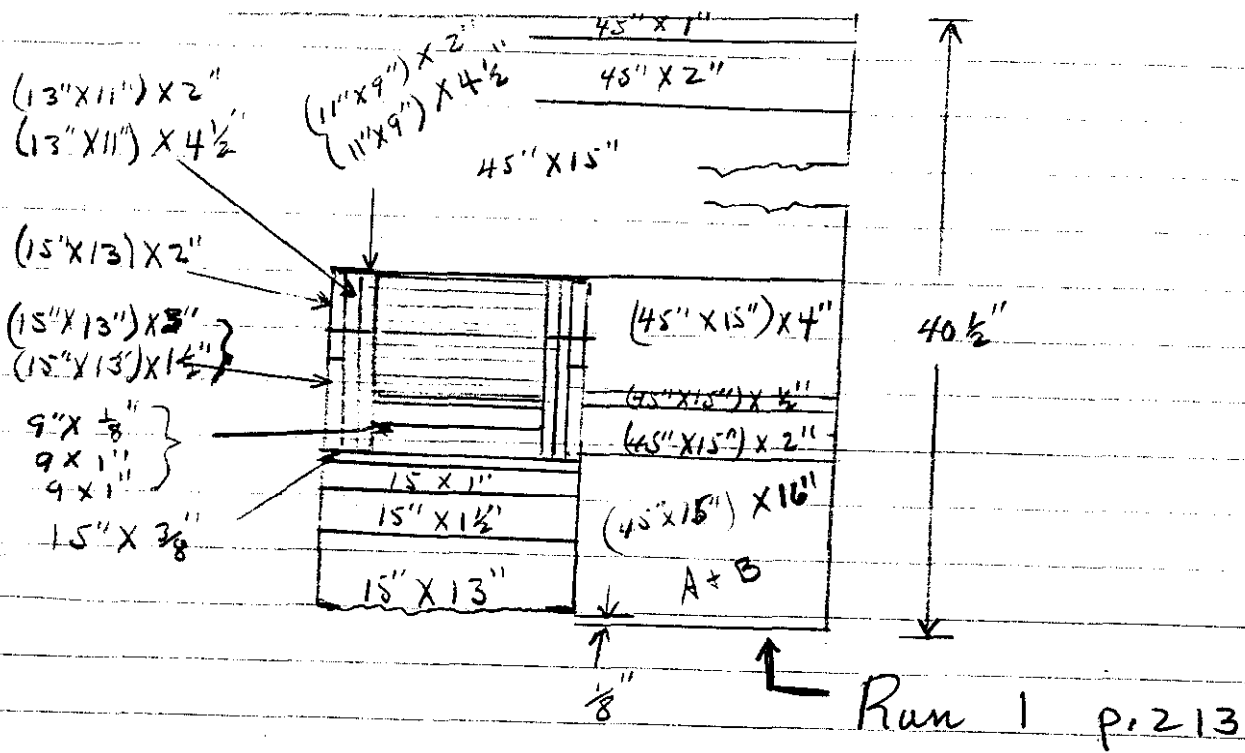 45" X 1"
45" X 2"
(13"X11") X 2"
(13"X11") X 4½"
(11"X9") X 2"
(11"X9") X 4½"
45" X 15"
(15"X13) X 2"
(15"X13") X 3"
(15"X13") X 1½"
9" X ⅛"
9 X 1"
9 X 1"
15" X ⅜"
(45" X 15") X 4"
(45"X15") X ½"
(45"X15") X 2"
40 ½"
15 X 1"
15" X 1½"
15" X 13"
(45"X15") X 16"
A + B
⅛"
Run 1 p. 213